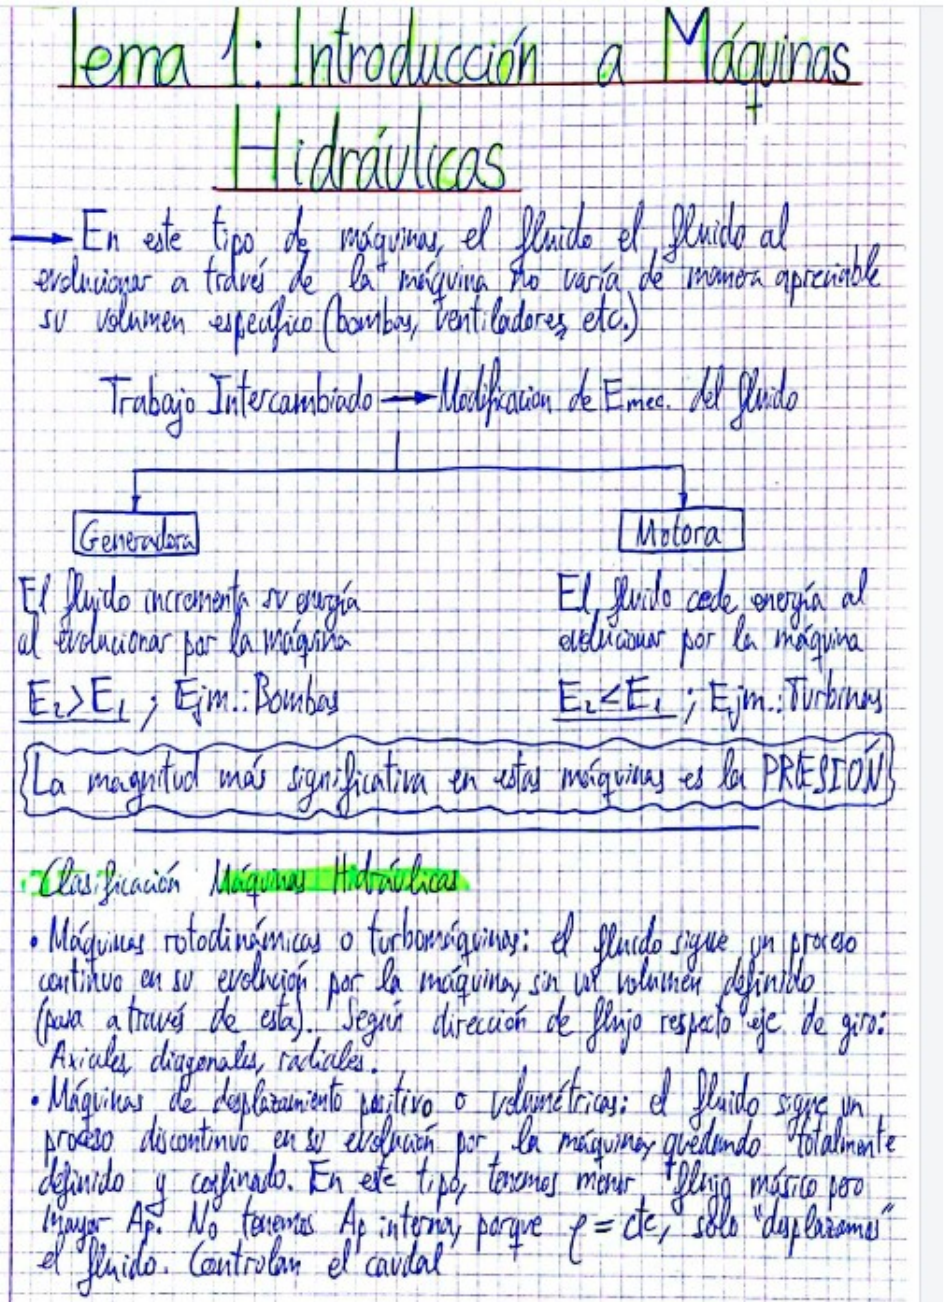 Tema 1: Introducción a Máquinas
Hidráulicas
→ En este tipo de máquinas, el fluido el fluido al
evolucionar a través de la máquina no varía de manera apreciable
su volumen específico (bombas, ventiladores, etc.)
Trabajo Intercambiado → Modificacion de Emec. del fluido
Generadora
Motora
El fluido incrementa su energía
al evolucionar por la máquina
E₂>E₁ ; Ejm.: Bombas
El fluido cede energía al
evolucionar por la máquina
E₂<E₁ ; Ejm.: Turbinas
La magnitud más significativa en estas máquinas es la PRESIÓN
·Clasificación Máquinas Hidráulicas
• Máquinas rotodinámicas o turbomáquinas: el fluido sigue un proceso
continuo en su evolución por la máquina, sin un volumen definido
(pasa a través de esta). Según dirección de flujo respecto eje de giro:
Axiales, diagonales, radiales.
• Máquinas de desplazamiento positivo o volumétricas: el fluido sigue un
proceso discontinuo en su evolución por la máquina, quedando totalmente
definido y confinado. En este tipo, tenemos menor flujo másico pero
mayor Δp. No tenemos Δp interna, porque ρ = cte, solo "desplazamos"
el fluido. Controlan el caudal